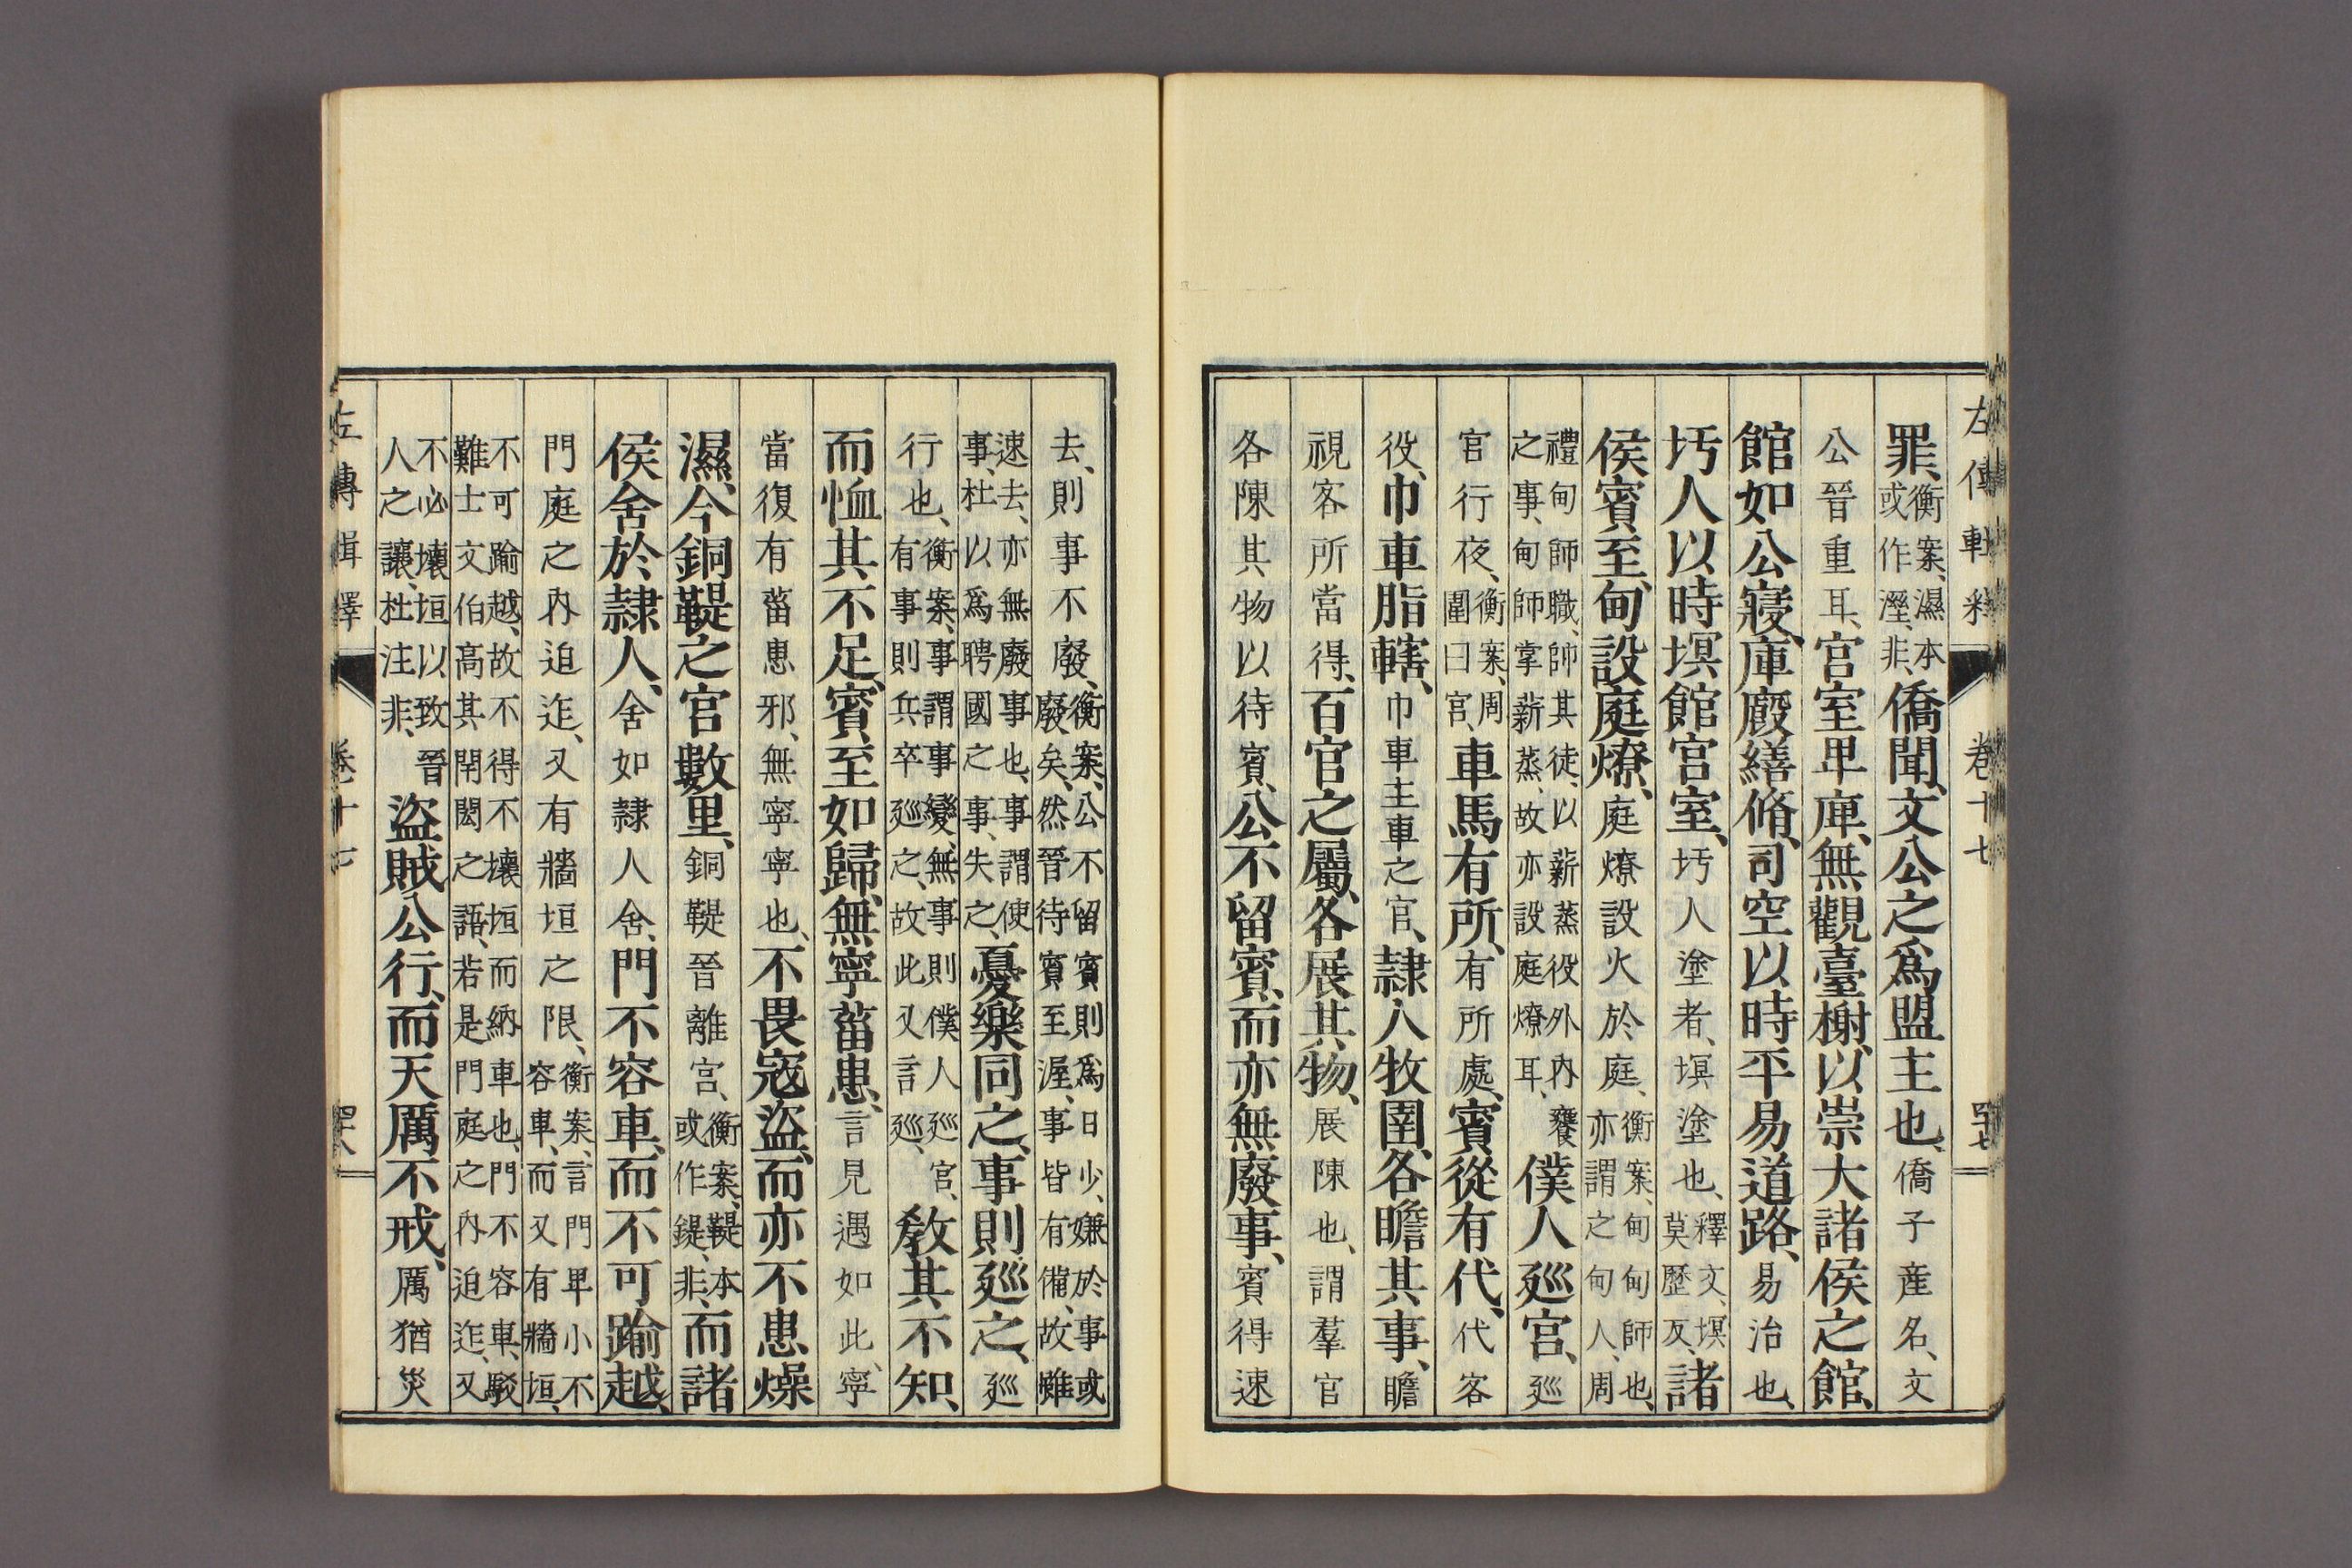 左傳輯釋 卷十七 四十七
罪、衡案、濕本或作溼、非、僑聞、文公之爲盟主也、僑子産名、文
公晉重耳、宮室卑庳、無觀臺榭、以崇大諸侯之館、
館如公寢、庫廏繕脩、司空以時平易道路、易治也、
圬人以時塓館宮室、圬人塗者、塓塗也、釋文、塓莫歷反、諸
侯賓至、甸設庭燎、庭燎設火於庭、衡案、甸甸師也、亦謂之甸人、周
禮甸師職、帥其徒、以薪蒸役外內饔之事、甸師掌薪蒸、故亦設庭燎耳、僕人廵宮、廵
官行夜、衡案、周圍曰宮、車馬有所、有所處、賓從有代、代客
役、巾車脂轄、巾車主車之官、隸人牧圉、各瞻其事、瞻
視客所當得、百官之屬、各展其物、展陳也、謂羣官
各陳其物以待賓、公不留賓、而亦無廢事、賓得速
去、則事不廢、衡案、公不留賓、則爲日少、嫌於事或廢矣、然晉待賓至渥、事皆有備、故雖
速去、亦無廢事也、事謂使事、杜以爲聘國之事、失之、憂樂同之、事則廵之、廵
行也、衡案、事謂事變、無事則僕人廵宮、有事則兵卒廵之、故此又言廵、敎其不知、
而恤其不足、賓至如歸、無寧菑患、言見遇如此、寧
當復有菑患邪、無寧寧也、不畏寇盜、而亦不患燥
濕、今銅鞮之宮數里、銅鞮晉離宮、衡案、鞮本或作鍉、非、而諸
侯舍於隸人、舍如隸人舍、門不容車、而不可踰越、
門庭之內迫迮、又有牆垣之限、衡案、言門卑小不容車、而又有牆垣、
不可踰越、故不得不壞垣而納車也、門不容車、駁難士文伯高其閈閎之語、若是門庭之內迫迮、又
不必壞垣以致晉人之讓、杜注非、盜賊公行、而天厲不戒、厲猶災
左傳輯釋 卷十七 四十八